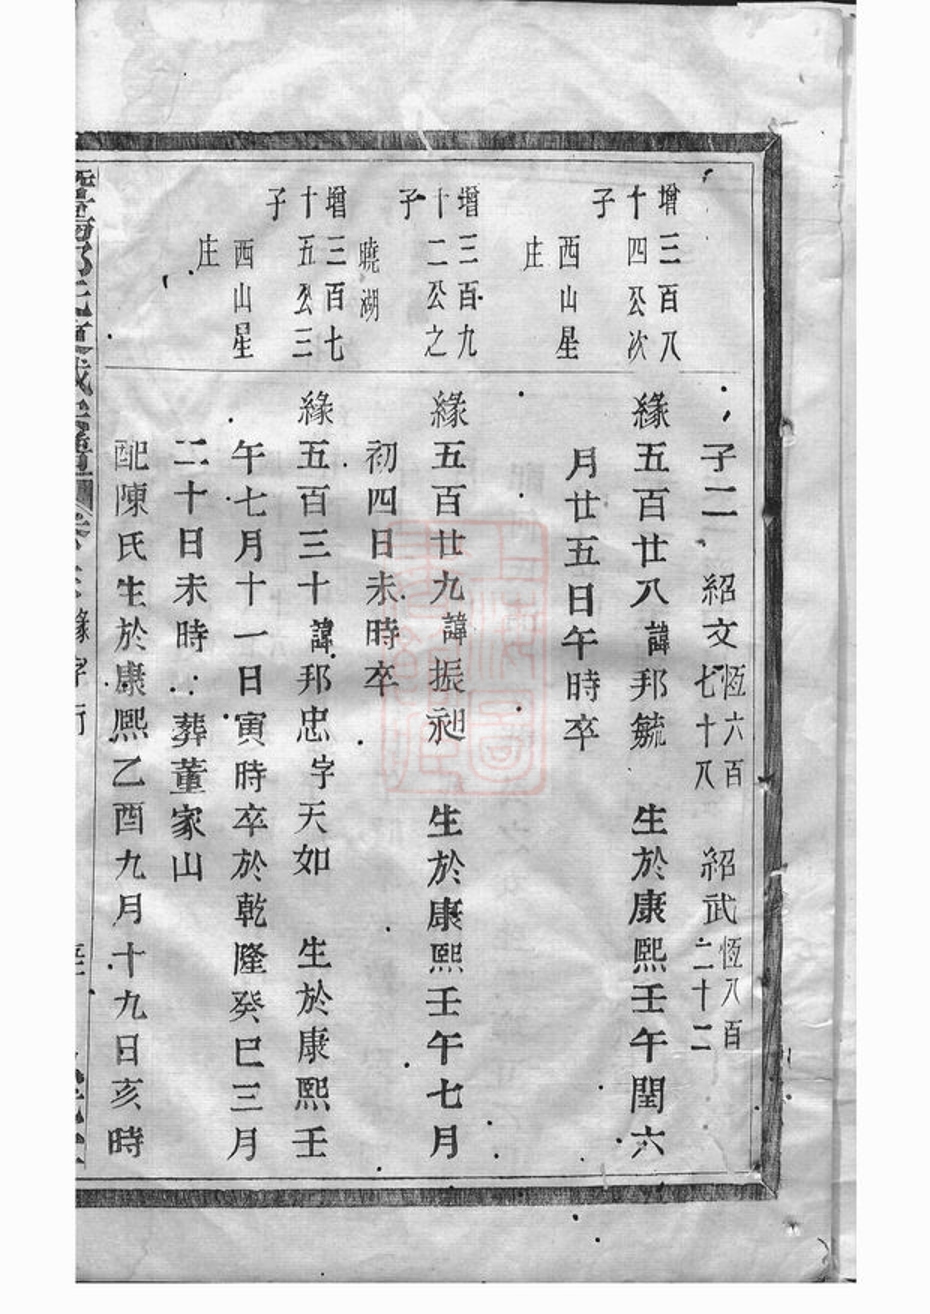 子二 紹文恆六百七十八 紹武恆八百二十二
增三百八
十四公次
子
緣五百廿八諱邦毓 生於康熙壬午閏六
西山星
庄
月廿五日午時卒
增三百九
十二公之
子
緣五百廿九諱振昶 生於康熙壬午七月
曉湖
初四日未時卒
增三百七
十五公三
子
緣五百三十諱邦忠字天如 生於康熙壬
西山星
庄
午七月十一日寅時卒於乾隆癸巳三月
二十日未時 葬董家山
配陳氏生於康熙乙酉九月十九日亥時